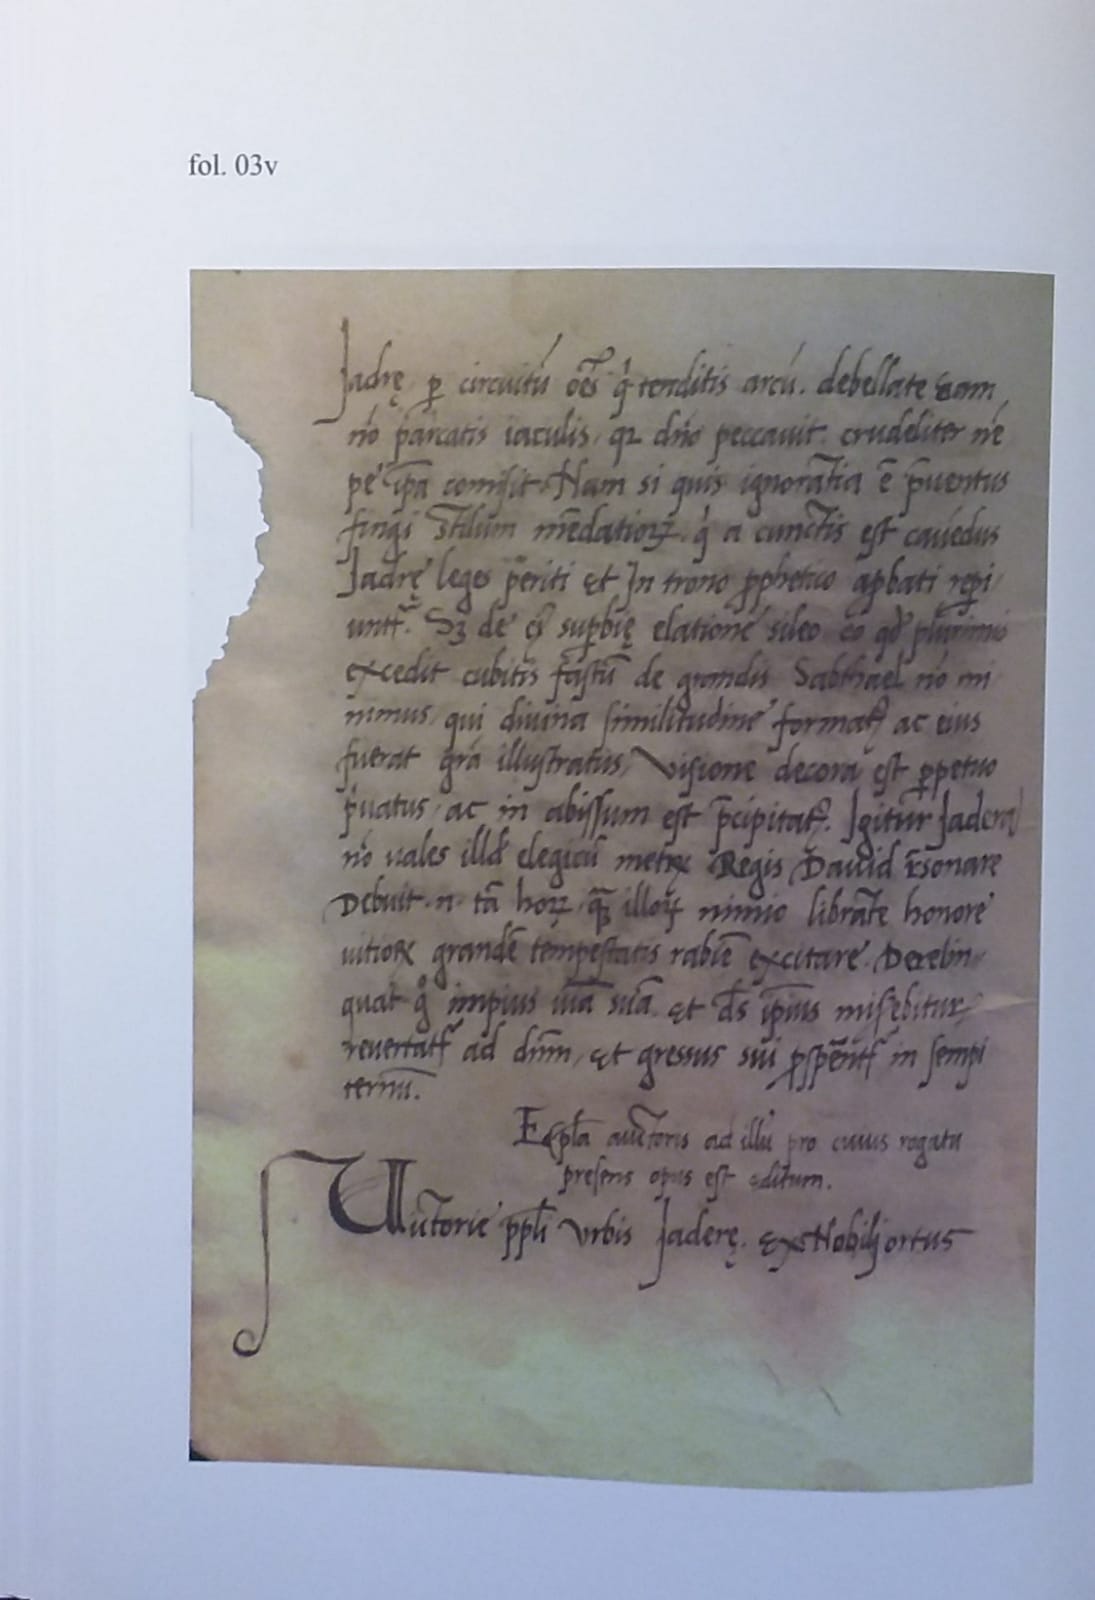 fol. 03v
Jadrę p circuitú oẽs q́ tenditis arcú. debellate eam
nó parcatis iaculis, qꝛ dńo peccauit. crudeliter né
pe ip̃a comisit. Nam si quis ignorãtia ẽ p̃uentus
fingi stilum mẽdatioꝝ. q́ a cunctis est cauẽdus
Jadrę leges periti et In trono prophetico apbati repi
unt᷑. Sꝫ de superbię elationé sileo eo qđ plurimis
excedit cubitis fastũ de grandis Sabthael nó mi
nimus, qui diuina similitudiné format᷑ ac eius
fuerat grã illustratus, Visione decora est perpetuo
p̃uatus, ac in abissum est p̃cipitat᷑. Igitur Jadera
nó uales illđ elegicũ metrꝝ Regis Dauid r̃sonare
Debuit .n. tã hoꝝ illoꝝ nimio librãte honore
uitioꝝ grandẽ tempestatis rabiẽ excitare. Derelin
quat g̊ impius uiã suã et d̃s ip̃ius misẽbitur,
reuertat᷑ ad dñm, et gressus sui ꝓspẽnt᷑ in sempi
ternũ.
Ep̃la auctoris ad illũ pro cuius rogatu
presens opus est editum.
Uictorie ppli Vrbis Jaderę. ex Nobili ortus